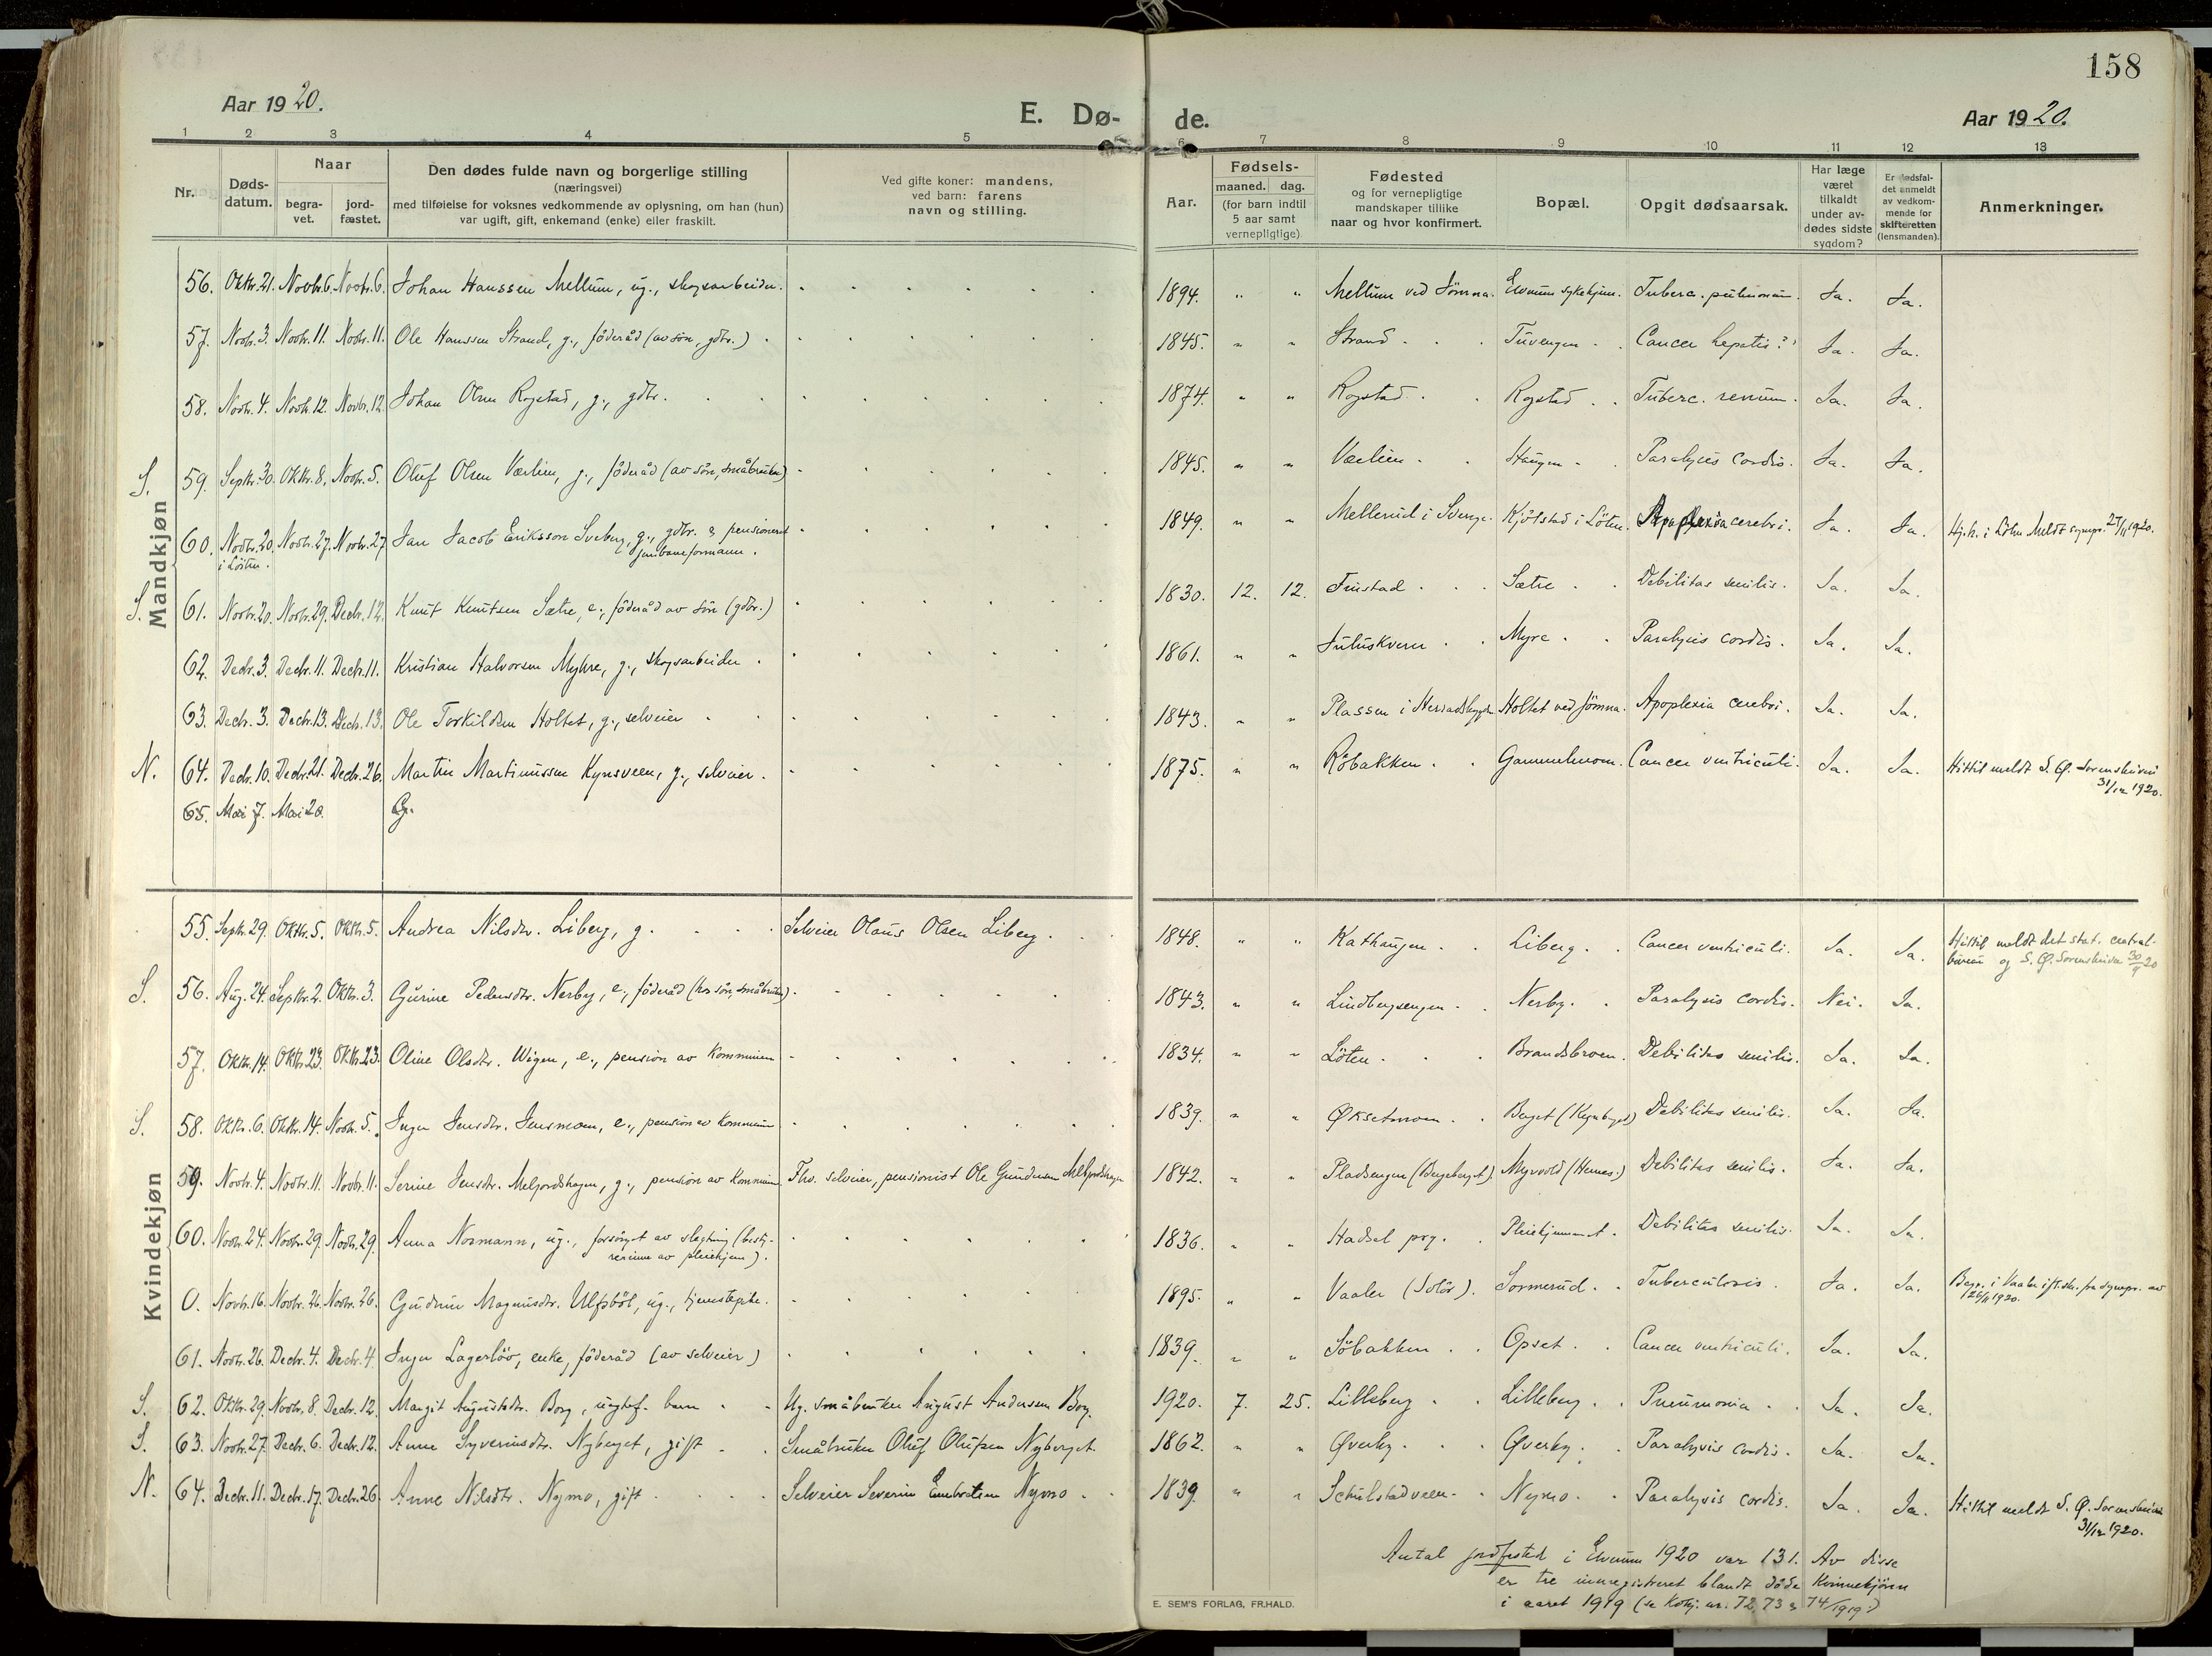 158
Aar 1920.
E. Dø- de.
Aar 1920.
1 2 3 4 5 6 7 8 9 10 11 12 13
Nr.
Døds-
datum.
Naar
begra-
vet.
jord-
fæstet.
Den dødes fulde navn og borgerlige stilling
(næringsvei)
med tilføielse for voksnes vedkommende av oplysning, om han (hun)
var ugift, gift, enkemand (enke) eller fraskilt.
Ved gifte koner: mandens,
ved barn: farens
navn og stilling.
Aar.
Fødsels-
maaned. dag.
(for barn indtil
5 aar samt
vernepligtige)
Fødested
og for vernepligtige
mandskaper tillike
naar og hvor konfirmert.
Bopæl.
Opgit dødsaarsak.
Har læge
været
tilkaldt
under av-
dødes sidste
sygdom?
Er dødsfal-
det anmeldt
av vedkom-
mende for
skifteretten
(lensmanden).
Anmerkninger.
Mandkjøn
56. Oktbr. 21. Novbr. 6. Novbr. 6. Johan Hanssen Mellum, ug., skogsarbeider. 1894. " " Mellum ved Jømna. Elverum sykehjem. Tuberc. pulmonum. Ja. Ja.
57. Novbr. 3. Novbr. 11. Novbr. 11. Ole Hanssen Strand, g., føderåd (av søn, gdbr.) 1845. " " Strand Tuvengen Cancer hepatis? Ja. Ja.
58. Novbr. 4. Novbr. 12. Novbr. 12. Johan Olsen Rogstad, g., gdbr. 1874. " " Rogstad Rogstad Tuberc. renum. Ja. Ja.
S. 59. Septbr. 30. Oktbr. 8. Novbr. 5. Oluf Olsen Værlien, g., føderåd (av søn, småbruker) 1845. " " Værlien Haugen Paralysis cordis. Ja. Ja.
60. Novbr. 20. Novbr. 27. Novbr. 27. Jan Jacob Eriksson Sveberg, g., gdbr. & pensioneret 1849. " " Mellerud i Sverige. Kjølstad i Løten. Apoplexia cerebri. Ja. Ja. i Løten Meldt 27/11 1920.
i Løten. jernbaneformann.
S. 61. Novbr. 20. Novbr. 29. Decbr. 12. Knut Knutsen Sætre, e., føderåd av søn (gdbr.) 1830. 12. 12. Sætre Debilitas senilis. Ja. Ja.
62. Decbr. 3. Decbr. 11. Decbr. 11. Kristian Halvorsen Myhre, g., skogsarbeider. 1861. " " Juluskveen Myre Paralysis cordis. Ja. Ja.
63. Decbr. 3. Decbr. 13. Decbr. 13. Ole Torkildsen Holtet, g., selveier 1843. " " Plassen i Hernadsbygden Holtet ved Jømna. Apoplexia cerebri. Ja. Ja.
N. 64. Decbr. 10. Decbr. 21. Decbr. 26. Martin Martinussen Kynsveen, g., selveier. 1875. " " Røbakken Gammelmoen. Cancer ventriculi. Ja. Ja. Hittil meldt S. Ø. Sorenskriveri
31/12 1920.
65. Mai 7. Mai 20. G.
Kvindekjøn
55. Septbr. 29. Oktbr. 5. Oktbr. 5. Andrea Nilsdtr. Liberg, g. Selveier Olaus Olsen Liberg. 1848. " " Kathaugen Liberg. Cancer ventriculi. Ja. Ja. Hittil meldt det stat. central-
bureau og S. Ø. Sorenskriver 30/9 20
S. 56. Aug. 24. Septbr. 2. Oktbr. 3. Gurine Pedersdtr. Nerby, e., føderåd (hos søn, småbruker) 1843. " " Lindbergsengen Nerby. Paralysis cordis. Nei. Ja.
57. Oktbr. 14. Oktbr. 23. Oktbr. 23. Oline Olsdtr. Wigen, e., pension av kommunen 1834. " " Løten Brandsbroen. Debilitas senilis. Ja. Ja.
S. 58. Oktbr. 6. Oktbr. 14. Novbr. 5. Inger Jensdtr. Jensmoen, e., pension av kommunen 1839. " " Øksetmoen Berget Debilitas senilis. Ja. Ja.
59. Novbr. 4. Novbr. 11. Novbr. 11. Serine Jensdtr. Melfjordshagen, g., pension av kommunen Fhv. selveier, pensionist Ole Gundersen Melfjordshagen 1842. " " Pladsengen (Bergeberget) Myrvold (Hernes.) Debilitas senilis. Ja. Ja.
60. Novbr. 24. Novbr. 29. Novbr. 29. Anna Normann, ug., forsørget av slegtning (besty- 1836. " " Hadsel prg. Pleiehjemmet. Debilitas senilis. Ja. Ja.
rerinne av pleiehjem).
0. Novbr. 16. Novbr. 26. Novbr. 26. Gudrun Magnusdtr. Ulfsbøl, ug., tjenestepike. 1895. " " Vaaler (Solør). Sormerud. Tuberculosis. Ja. Ja. Begr. i Vaaler
26/11 1920.
61. Novbr. 26. Decbr. 4. Decbr. 4. Inger Lagerløv, enke, føderåd (av selveier) 1839. " " Søbakken Opset. Cancer ventriculi. Ja. Ja.
S. 62. Oktbr. 29. Novbr. 8. Decbr. 12. Margit Augustsdtr. Borg, uegtef. barn Ug. småbruker August Andersen Borg. 1920. 7. 25. Lilleberg Lilleberg. Pneumonia Ja. Ja.
S. 63. Novbr. 27. Decbr. 6. Decbr. 12. Anne Syverinsdtr. Nyberget, gift Småbruker Oluf Olufsen Nyberget. 1862. " " Øverby. Øverby. Paralysis cordis. Ja. Ja.
N. 64. Decbr. 11. Decbr. 17. Decbr. 26. Anne Nilsdtr. Nymo, gift Selveier Severin Embretsen Nymo 1839. " " Schulstadveen Nymo. Paralysis cordis. Ja. Ja. Hittil meldt S. Ø. Sorenskriveri
31/12 1920.
Antal jordfæsted i Elverum 1920 var 131. Av disse
er tre innregistreret blandt døde Kvinnekjønn
i aaret 1919 (se Kvkj. nr. 72, 73 & 74/1919.)
E. SEM'S FORLAG, FR.HALD.